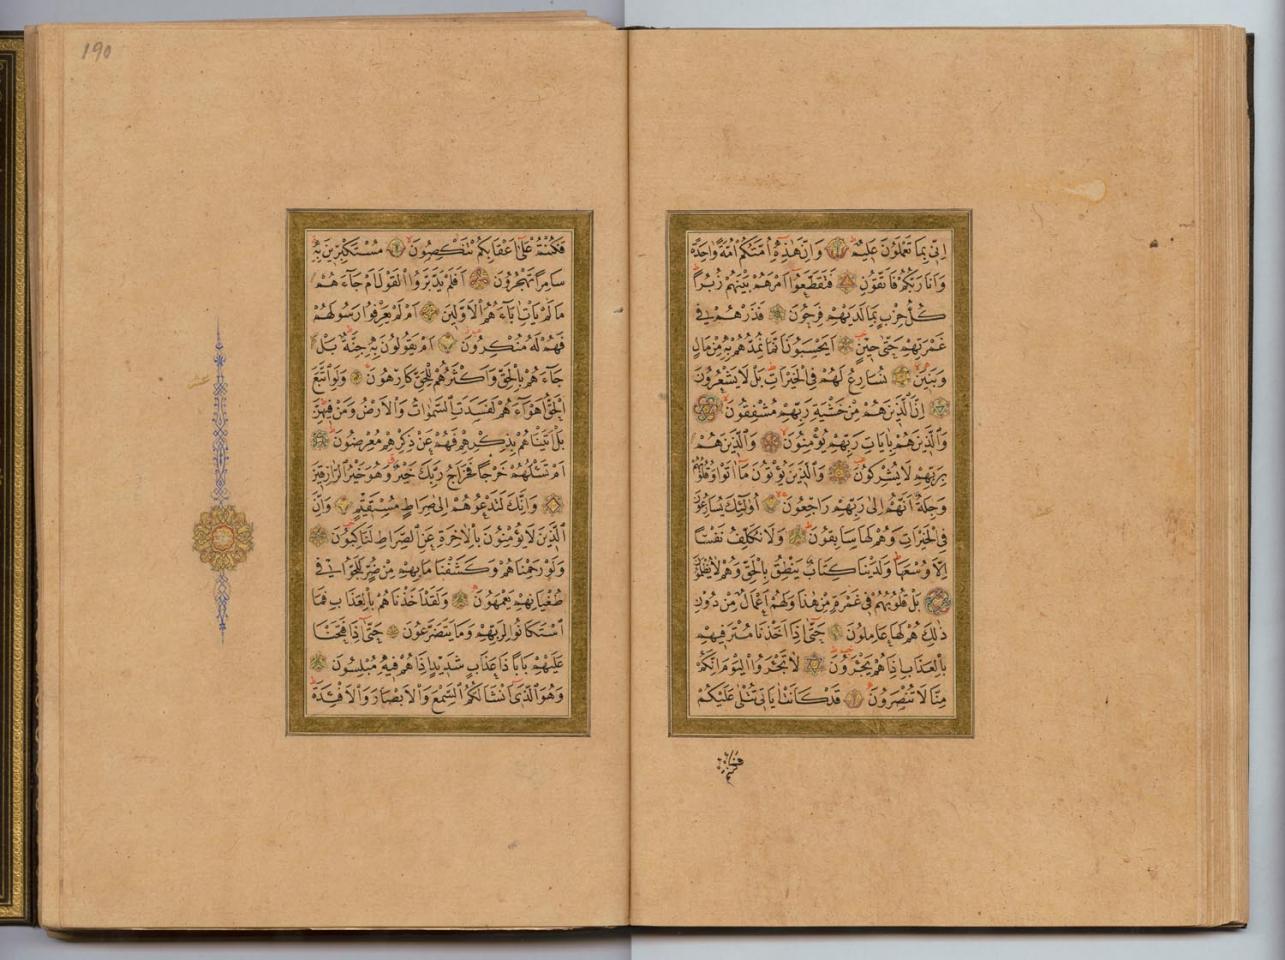 اِنِّي بِمَا تَعْمَلُونَ عَلِيمٌ وَاِنَّ هٰذِهِ اُمَّتُكُمْ اُمَّةً وَاحِدَةً
وَاَنَا رَبُّكُمْ فَاتَّقُونِ فَتَقَطَّعُوا اَمْرَهُمْ بَيْنَهُمْ زُبُرًا
كُلُّ حِزْبٍ بِمَا لَدَيْهِمْ فَرِحُونَ فَذَرْهُمْ فِي
غَمْرَتِهِمْ حَتّٰى حِينٍ اَيَحْسَبُونَ اَنَّمَا نُمِدُّهُمْ بِهِ مِنْ مَالٍ
وَبَنِينَ نُسَارِعُ لَهُمْ فِي الْخَيْرَاتِ بَلْ لَا يَشْعُرُونَ
اِنَّ الَّذِينَ هُمْ مِنْ خَشْيَةِ رَبِّهِمْ مُشْفِقُونَ
وَالَّذِينَ هُمْ بِاٰيَاتِ رَبِّهِمْ يُؤْمِنُونَ وَالَّذِينَ هُمْ
بِرَبِّهِمْ لَا يُشْرِكُونَ وَالَّذِينَ يُؤْتُونَ مَا اٰتَوْا وَقُلُوبُهُمْ
وَجِلَةٌ اَنَّهُمْ اِلٰى رَبِّهِمْ رَاجِعُونَ اُولٰئِكَ يُسَارِعُونَ
فِي الْخَيْرَاتِ وَهُمْ لَهَا سَابِقُونَ وَلَا نُكَلِّفُ نَفْسًا
اِلَّا وُسْعَهَا وَلَدَيْنَا كِتَابٌ يَنْطِقُ بِالْحَقِّ وَهُمْ لَا يُظْلَمُونَ
بَلْ قُلُوبُهُمْ فِي غَمْرَةٍ مِنْ هٰذَا وَلَهُمْ اَعْمَالٌ مِنْ دُونِ
ذٰلِكَ هُمْ لَهَا عَامِلُونَ حَتّٰى اِذَا اَخَذْنَا مُتْرَفِيهِمْ
بِالْعَذَابِ اِذَا هُمْ يَجْئَرُونَ لَا تَجْئَرُوا الْيَوْمَ اِنَّكُمْ
مِنَّا لَا تُنْصَرُونَ قَدْ كَانَتْ اٰيَاتِي تُتْلٰى عَلَيْكُمْ
فَكُنْتُمْ
190
فَكُنْتُمْ عَلٰى اَعْقَابِكُمْ تَنْكِصُونَ مُسْتَكْبِرِينَ بِهِ
سَامِرًا تَهْجُرُونَ اَفَلَمْ يَدَّبَّرُوا الْقَوْلَ اَمْ جَاءَهُمْ
مَا لَمْ يَاْتِ اٰبَاءَهُمُ الْاَوَّلِينَ اَمْ لَمْ يَعْرِفُوا رَسُولَهُمْ
فَهُمْ لَهُ مُنْكِرُونَ اَمْ يَقُولُونَ بِهِ جِنَّةٌ بَلْ
جَاءَهُمْ بِالْحَقِّ وَاَكْثَرُهُمْ لِلْحَقِّ كَارِهُونَ وَلَوِ اتَّبَعَ
الْحَقُّ اَهْوَاءَهُمْ لَفَسَدَتِ السَّمٰوَاتُ وَالْاَرْضُ وَمَنْ فِيهِنَّ
بَلْ اَتَيْنَاهُمْ بِذِكْرِهِمْ فَهُمْ عَنْ ذِكْرِهِمْ مُعْرِضُونَ
اَمْ تَسْئَلُهُمْ خَرْجًا فَخَرَاجُ رَبِّكَ خَيْرٌ وَهُوَ خَيْرُ الرَّازِقِينَ
وَاِنَّكَ لَتَدْعُوهُمْ اِلٰى صِرَاطٍ مُسْتَقِيمٍ وَاِنَّ
الَّذِينَ لَا يُؤْمِنُونَ بِالْاٰخِرَةِ عَنِ الصِّرَاطِ لَنَاكِبُونَ
وَلَوْ رَحِمْنَاهُمْ وَكَشَفْنَا مَا بِهِمْ مِنْ ضُرٍّ لَلَجُّوا فِي
طُغْيَانِهِمْ يَعْمَهُونَ وَلَقَدْ اَخَذْنَاهُمْ بِالْعَذَابِ فَمَا
اسْتَكَانُوا لِرَبِّهِمْ وَمَا يَتَضَرَّعُونَ حَتّٰى اِذَا فَتَحْنَا
عَلَيْهِمْ بَابًا ذَا عَذَابٍ شَدِيدٍ اِذَا هُمْ فِيهِ مُبْلِسُونَ
وَهُوَ الَّذِي اَنْشَاَ لَكُمُ السَّمْعَ وَالْاَبْصَارَ وَالْاَفْئِدَةَ